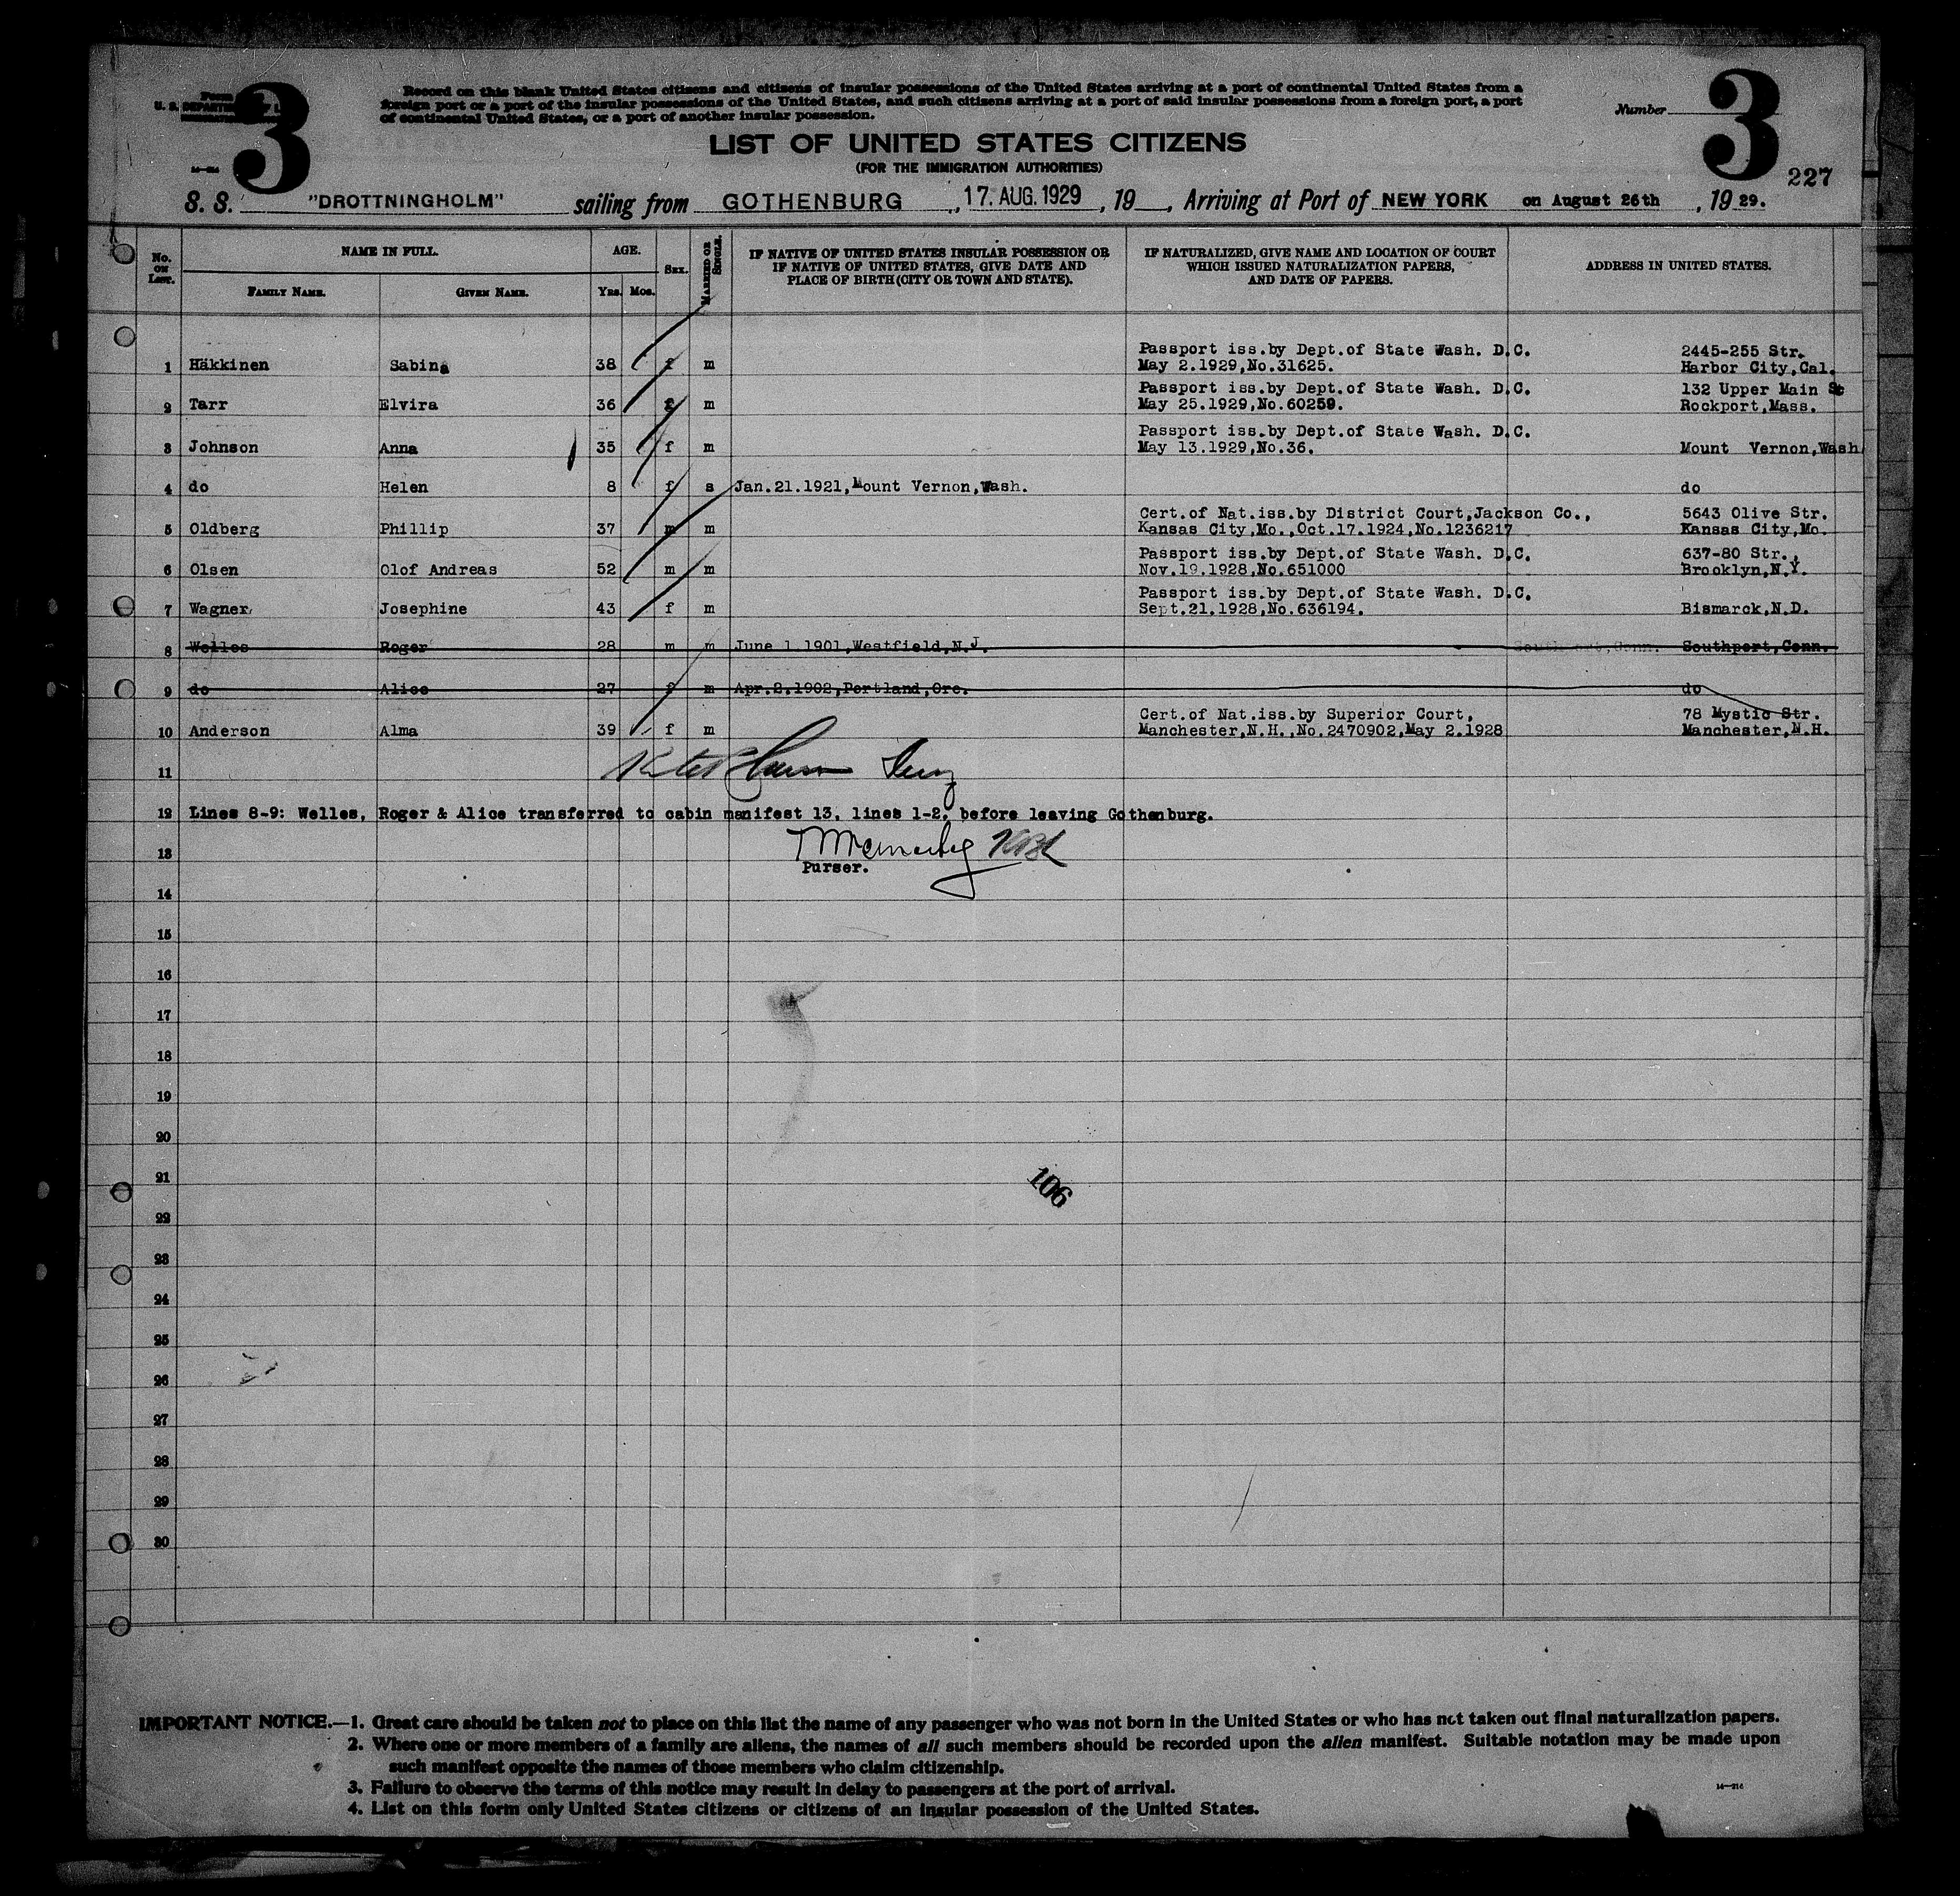 3
Record on this blank United States citizens and citizens of insular possessions of the United States arriving at a port of continental United States from a
foreign port or a port of the insular possessions of the United States, and such citizens arriving at a port of said insular possessions from a foreign port, a port
of continental United States, or a port of another insular possession.
Number
3
Form
U. S. DEPARTMENT OF
LIST OF UNITED STATES CITIZENS
(FOR THE IMMIGRATION AUTHORITIES)
227
S. S. "DROTTNINGHOLM" sailing from GOTHENBURG, 17. AUG. 1929, 19 , Arriving at Port of NEW YORK on August 26th, 19 29.
No. on List.
NAME IN FULL.
AGE.
Sex.
Married or Single.
IF NATIVE OF UNITED STATES INSULAR POSSESSION OR
IF NATIVE OF UNITED STATES, GIVE DATE AND
PLACE OF BIRTH (CITY OR TOWN AND STATE).
IF NATURALIZED, GIVE NAME AND LOCATION OF COURT
WHICH ISSUED NATURALIZATION PAPERS,
AND DATE OF PAPERS.
ADDRESS IN UNITED STATES.
Family Name. Given Name. Yrs. Mos.
Passport iss.by Dept.of State Wash. D.C. 2445-255 Str.
1 Häkkinen Sabina 38 f m May 2.1929,No.31625. Harbor City,Cal.
Passport iss.by Dept.of State Wash. D.C. 132 Upper Main St
2 Tarr Elvira 36 f m May 25.1929,No.60259. Rockport,Mass.
Passport iss.by Dept.of State Wash. D.C.
3 Johnson Anna 35 f m May 13.1929,No.36. Mount Vernon,Wash
4 do Helen 8 f s Jan.21.1921,Mount Vernon,Wash. do
Cert.of Nat.iss.by District Court,Jackson Co., 5643 Olive Str.
5 Oldberg Phillip 37 m m Kansas City,Mo.,Oct.17.1924,No.1236217 Kansas City,Mo.
Passport iss.by Dept.of State Wash. D.C. 637-80 Str.,
6 Olsen Olof Andreas 52 m m Nov.19.1928,No.651000 Brooklyn,N.Y.
Passport iss.by Dept.of State Wash. D.C.
7 Wagner Josephine 43 f m Sept.21.1928,No.636194. Bismarck,N.D.
8 Welles Roger 28 m m June 1 1901,Westfield,N.J. Southport,Conn.
9 do Alice 27 f m Apr.2.1902,Portland,Ore. do
Cert.of Nat.iss.by Superior Court, 78 Mystic Str.
10 Anderson Alma 39 f m Manchester,N.H.,No.2470902,May 2.1928 Manchester,N.H.
11
12 Lines 8-9: Welles, Roger & Alice transferred to cabin manifest 13, lines 1-2, before leaving Gothenburg.
13
Purser.
14
15
16
17
18
19
20
21
106
22
23
24
25
26
27
28
29
30
IMPORTANT NOTICE.—1. Great care should be taken not to place on this list the name of any passenger who was not born in the United States or who has not taken out final naturalization papers.
2. Where one or more members of a family are aliens, the names of all such members should be recorded upon the alien manifest. Suitable notation may be made upon
such manifest opposite the names of those members who claim citizenship.
3. Failure to observe the terms of this notice may result in delay to passengers at the port of arrival.
14—214
4. List on this form only United States citizens or citizens of an insular possession of the United States.